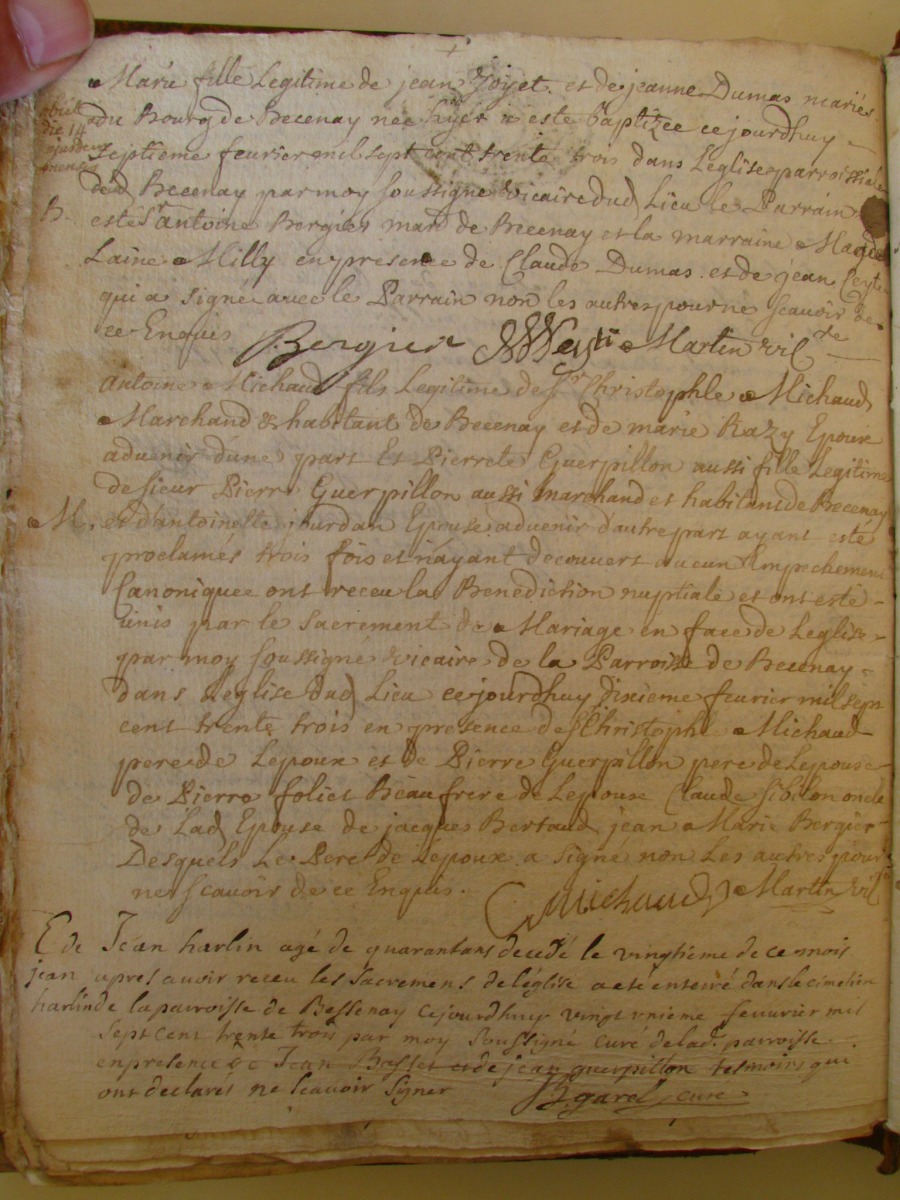 Marie fille Legitime de jean et de jeanne Dumas mariés
du Bourg de Becenay née hyer a este baptizee cejourdhuy
obiit die 14 ejusdem mensis
septieme feurier mil sept cent trente trois dans Leglise parroissialle
dud Becenay par moy soussigné vicaire dud Lieu le Parrain
B.
este Sr antoine Bergier mard de Becenay et la marraine Magde
Laine Milly en presence de Claude Dumas et de jean
qui a signé avec le Parrain non les autres pour ne scauoir de
ce Enquis Bergier Martin vic
antoine Michaud fils Legitime de Sr Christophle Michaud
Marchand & habitant de Becenay et de marie Razy Epoux
aduenir d'une part Et Pierrete Guerpillon aussi fille Legitime
de sieur Pierre Guerpillon aussi marchand et habitant de Becenay
M. et d'antoinette jourdan Epouse aduenir d'autre part ayant esté
proclamés trois fois et n'ayant decouuert aucun Empechement
Canonique ont receu la Benediction nuptiale et ont esté
unis par le Sacrement de Mariage en face de Leglise
par moy soussigné vicaire de la Parroisse de Becenay
dans Leglise dud Lieu cejourdhuy dixieme feurier mil sept
cent trente trois en presence de Sr Christophle Michaud
pere de Lepoux et de Pierre Guerpillon pere de Lepouse
de Pierre foliet Beaufrere de Lepouse Claude Sibilon oncle
de Lad Epouse de jacques Bertaud jean Marie Bergier
Desquels Le Pere de Lépoux a signé non Les autres pour
ne scauoir de ce Enquis. Michaud Martin vic
E de jean harlin
Jean harlin agé de quarant ans decedé le vingtieme de ce mois
apres auoir receu les Sacremens de léglise a eté enterré dans le cimetiere
de la parroisse de Bessenay cejourdhuy vingt unieme feuurier mil
sept cent trente trois par moy soussigné curé de lad. parroisse
en presence de Jean Basset et de jean guerpillon tesmoins qui
ont declarés ne scauoir signer curé